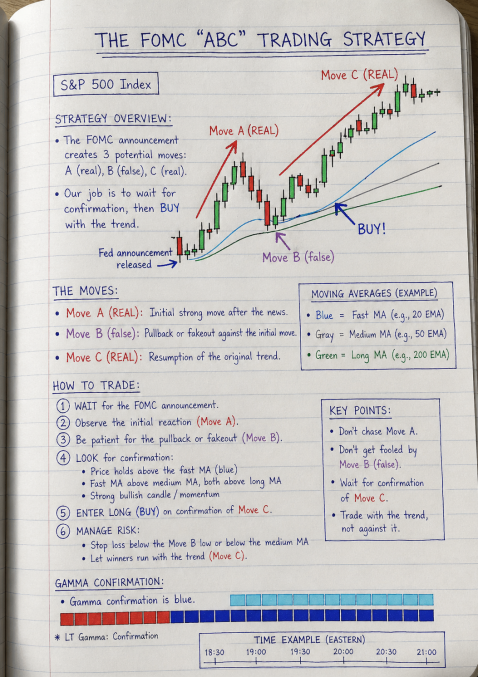 THE FOMC “ABC” TRADING STRATEGY
S&P 500 Index
STRATEGY OVERVIEW:
• The FOMC announcement
creates 3 potential moves:
A (real), B (false), C (real).
• Our job is to wait for
confirmation, then BUY
with the trend.
Move A (REAL)
Move C (REAL)
Fed announcement
released
Move B (false)
BUY!
THE MOVES:
• Move A (REAL): Initial strong move after the news.
• Move B (false): Pullback or fakeout against the initial move.
• Move C (REAL): Resumption of the original trend.
MOVING AVERAGES (EXAMPLE)
• Blue = Fast MA (e.g., 20 EMA)
• Gray = Medium MA (e.g., 50 EMA)
• Green = Long MA (e.g., 200 EMA)
HOW TO TRADE:
1 WAIT for the FOMC announcement.
2 Observe the initial reaction (Move A).
3 Be patient for the pullback or fakeout (Move B).
4 LOOK for confirmation:
• Price holds above the fast MA (blue)
• Fast MA above medium MA, both above long MA
• Strong bullish candle / momentum
5 ENTER LONG (BUY) on confirmation of Move C.
6 MANAGE RISK:
• Stop loss below the Move B low or below the medium MA
• Let winners run with the trend (Move C).
KEY POINTS:
• Don't chase Move A.
• Don't get fooled by
Move B (false).
• Wait for confirmation
of Move C.
• Trade with the trend,
not against it.
GAMMA CONFIRMATION:
• Gamma confirmation is blue.
* LT Gamma: Confirmation
TIME EXAMPLE (EASTERN)
18:30 19:00 19:30 20:00 20:30 21:00